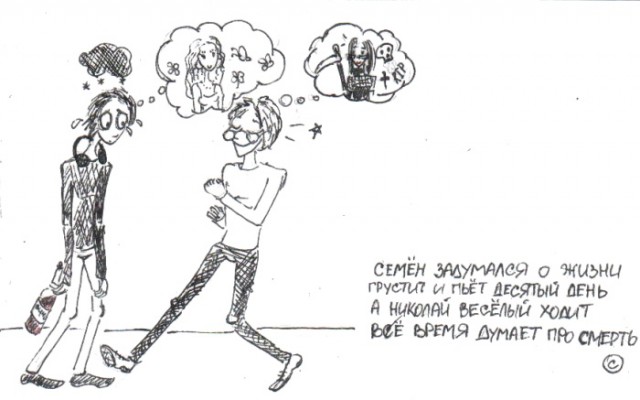 СЕМЁН ЗАДУМАЛСЯ О ЖИЗНИ
ГРУСТИТ И ПЬЁТ ДЕСЯТЫЙ ДЕНЬ
А НИКОЛАЙ ВЕСЁЛЫЙ ХОДИТ
ВСЁ ВРЕМЯ ДУМАЕТ ПРО СМЕРТЬ
©